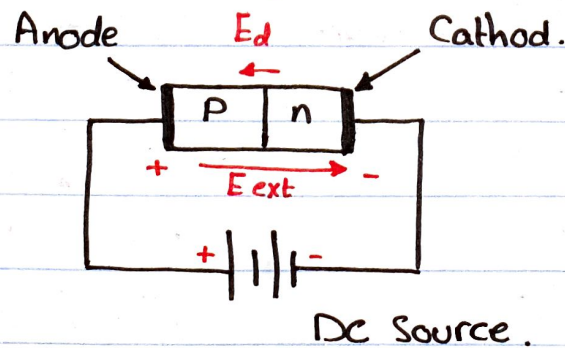 Anode
Ed
Cathod.
P
n
+
E ext
-
+
-
DC Source.